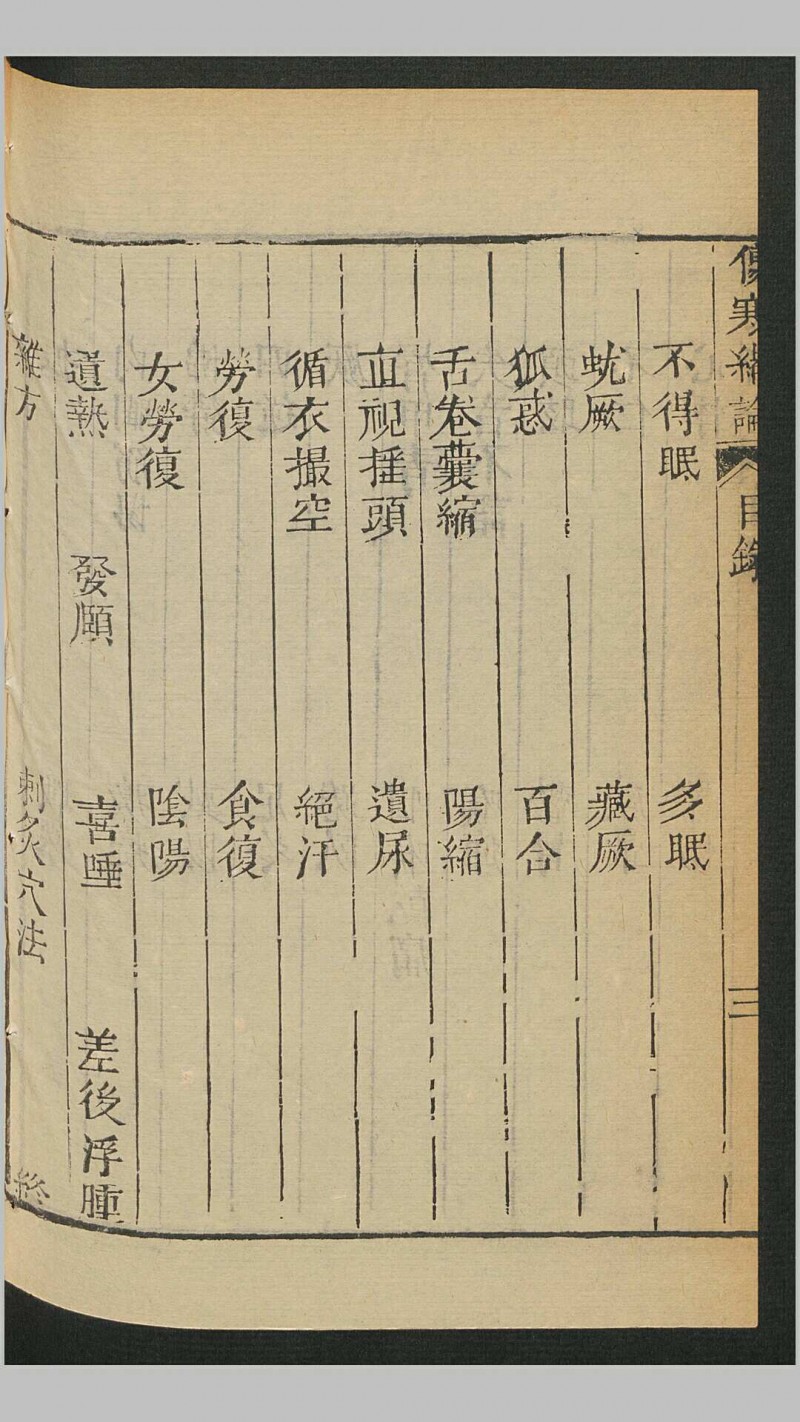 傷寒緒論 目錄 三
不得眠 多眠
蚘厥 藏厥
狐惑 百合
舌卷囊縮 陽縮
直視搖頭 遺尿
循衣撮空 絕汗
勞復 食復
女勞復 陰陽
遺熱 發頤 喜唾 差後浮腫
雜方 刺灸穴法 終